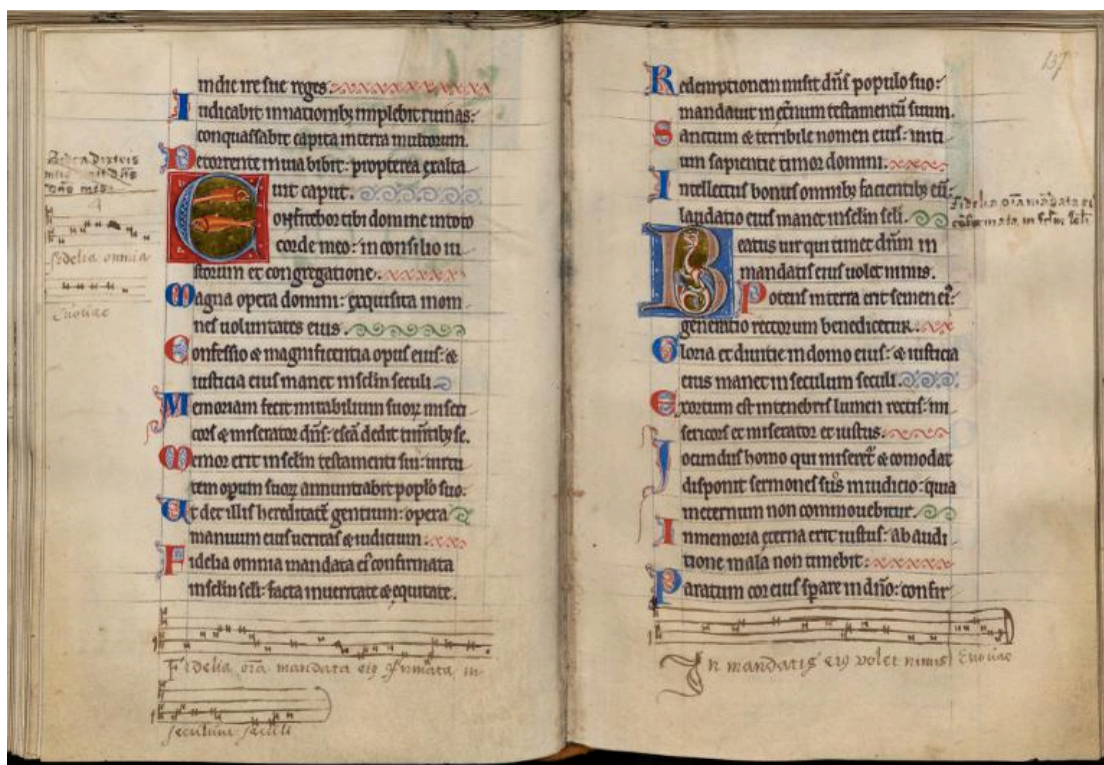 in die ire sue reges.
Iudicabit in nationibꝫ implebit ruinas:
conquassabit capita in terra multorum.
De torrente in uia bibet: propterea exalta
uit caput.
Confitebor tibi domine in toto
corde meo: in consilio iu
storum et congregatione.
Magna opera domini: exquisita in om
nes uoluntates eius.
Confessio & magnificentia opus eius: &
iusticia eius manet in sclm seculi
Memoriam fecit mirabilium suoꝝ miseri
cors & miserator dns: escā dedit timētibꝫ se.
Memor erit in sclm testamenti sui: uirtu
tem operum suoꝝ annuntiabit poplo suo.
Ut det illis hereditatē gentium: opera
manuum eius ueritas & iudicium:
Fidelia omnia mandata ei confirmata
in sclm scli: facta in ueritate & equitate.
fidelia omnia
Euouae
Fidelia oīa mandata eiꝰ in
seculum seculi
137
Redemptionem misit dns populo suo:
mandauit in et̄num testamentū suum.
Sanctum & terribile nomen eius: initi
um sapientie timor domini.
Intellectus bonus omnibꝫ facientibꝫ eū:
laudatio eius manet in sclm scli.
Beatus uir qui timet dnm in
mandatis eius uolet nimis.
Potens in terra erit semen eiꝰ:
generatio rectorum benedicetur.
Gloria et diuitie in domo eius: & iusticia
eius manet in seculum seculi.
Exortum est in tenebris lumen rectis: mi
sericors et miserator et iustus.
Jocundus homo qui miseret̄ & comodat
disponit sermones suos in iudicio: quia
in eternum non commouebitur.
In memoria eterna erit iustus: ab audi
tione mala non timebit:
Paratum cor eius sperare in dno: confir
Fidelia oīa mādata ei
In mandatis eiꝰ volet nimis Euouae